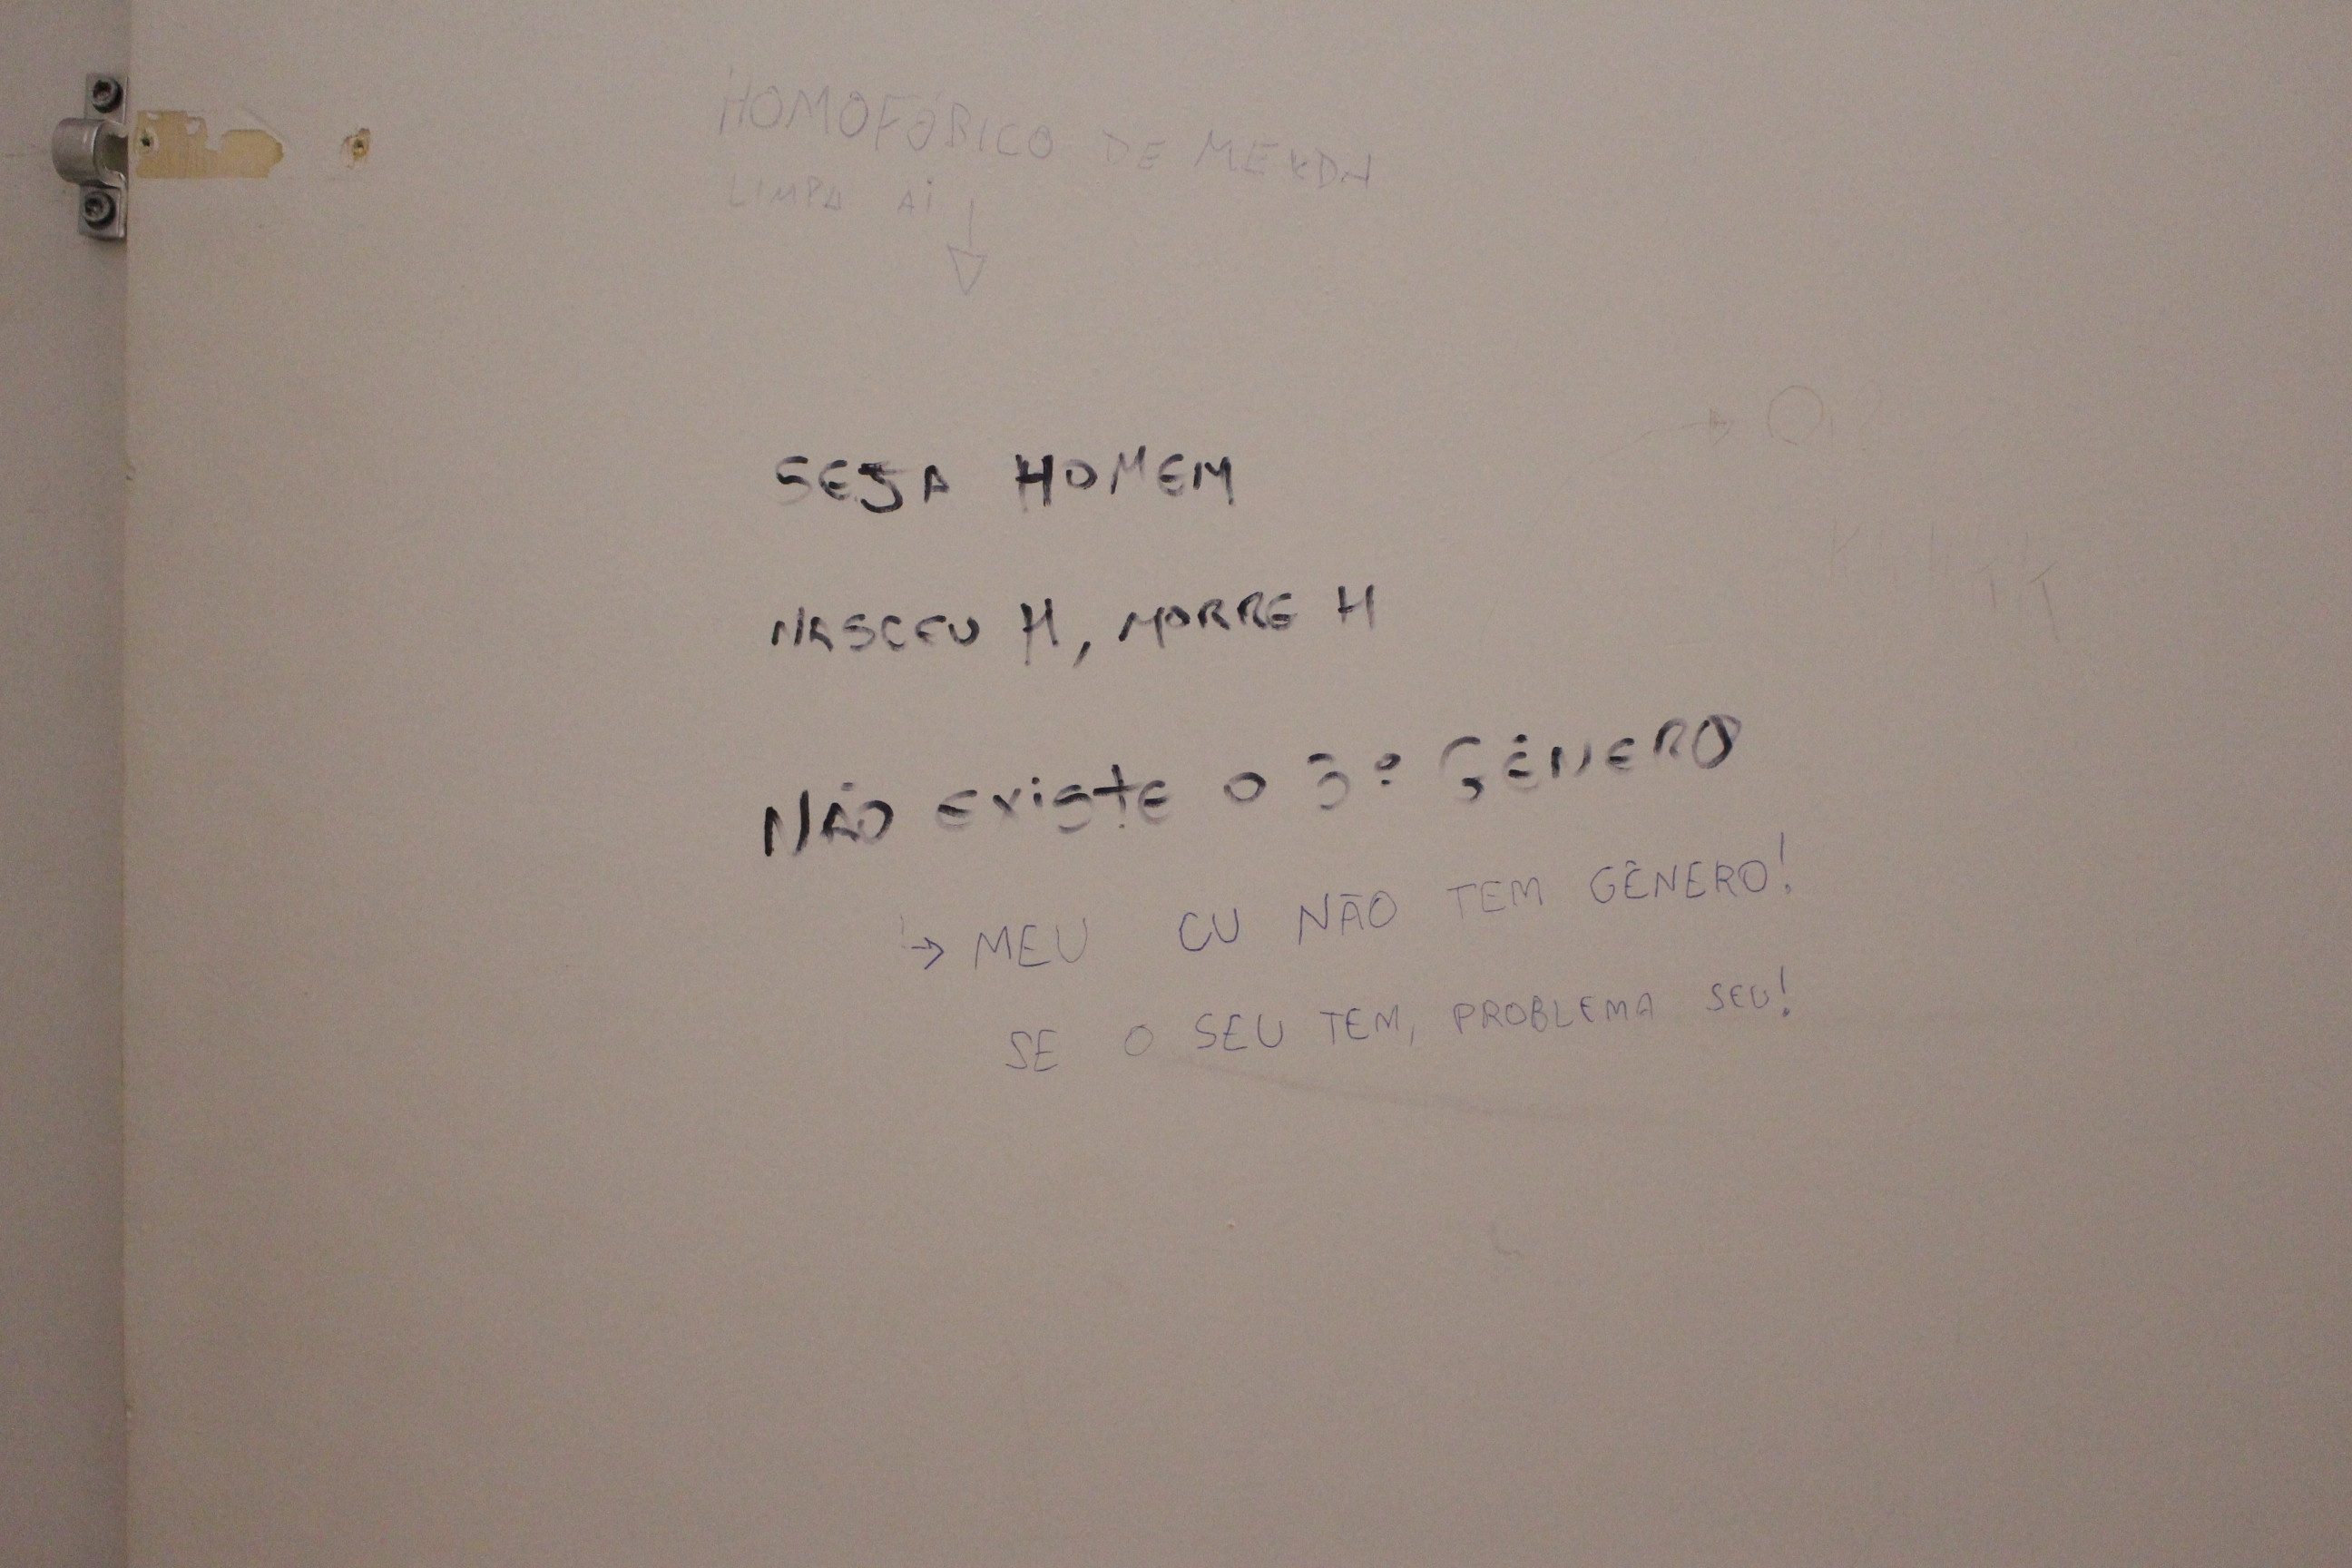 HOMOFÓBICO DE MERDA
LIMPA AÍ
SEJA HOMEM
NASCEU H, MORRE H
NÃO EXISTE O 3º GÊNERO
→ MEU CU NÃO TEM GÊNERO!
SE O SEU TEM, PROBLEMA SEU!